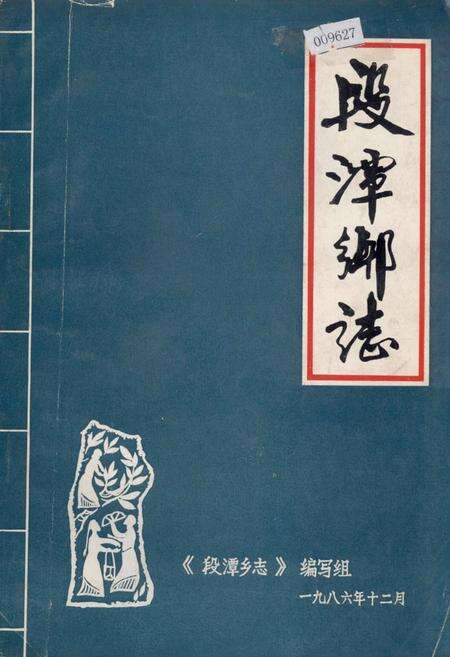 009627
段潭鄉誌
《段潭乡志》编写组
一九八六年十二月